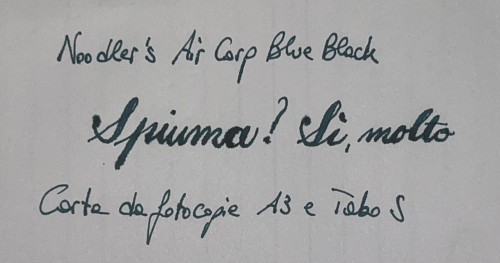 Noodler's Air Corp Blue Black
Spiuma? Si, molto
Carta da fotocopie A3 e Tabo S